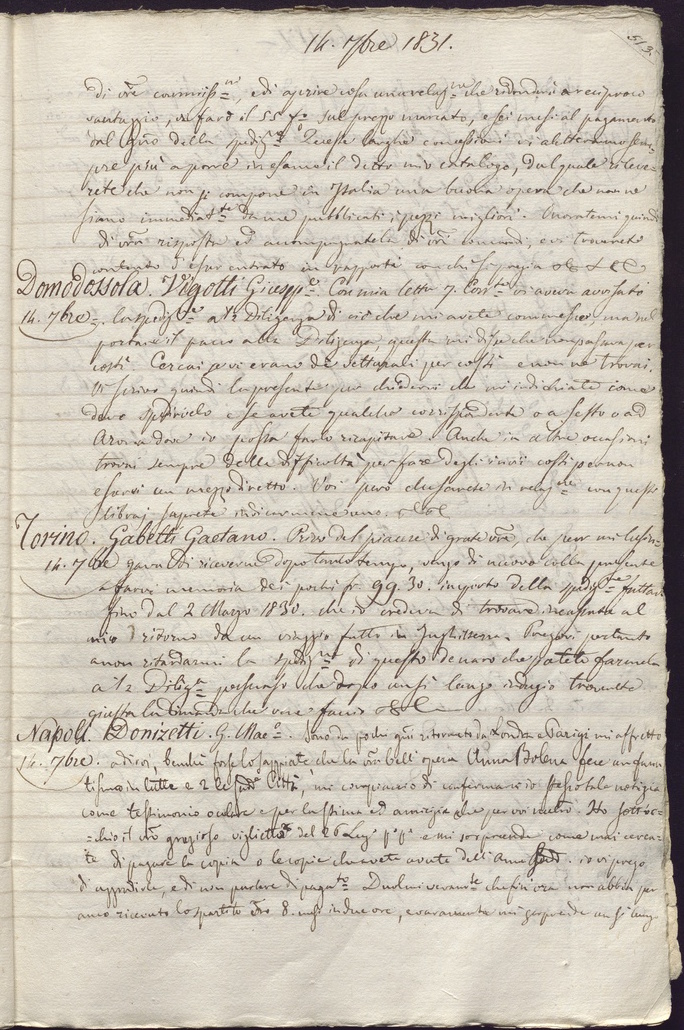 14. 7bre 1831.
513.
di vre commiss.ni, e di aprire cosa una relaz.ne che ridondi a reciproco
vantaggio, vi farò il 55 p% sul prezzo marcato, e sei mesi al pagamento
dal giro della spediz.ne Queste larghe concessioni vi aletteranno sem=
pre più a porre in esame il detto mio catalogo, dal quale rileve=
rete che non si compone in Italia una buona opera che non ne
siano immediat.te da me pubblicati i pezzi migliori. Onoratemi quindi
di vra risposta ed accompagnatela di vri comandi, e vi troverete
contento d'esser entrato in rapporti con chi si pregia
Domodossola. Vigotti Giusepp.e Con mia letta 7. Corr.te vi aveva avvisato
14. 7bre. la spediz.ne a 1/2 Diligenza di ciò che mi avete commesso, ma nel
portare il pacco alla Diligenza questa mi disse che non passava per
costì. Cercai se vi erano de' vetturali per costì e non ne trovai.
Vi scrivo quindi la presente per chiedervi che mi indichiate come
dove spedirvelo e se avete qualche corrispondente o a Sesto o ad
Arona dove io possa farlo ricapitare. Anche in altre occasioni
trovai sempre delle difficoltà per fare degli invii costì per non
esservi un mezzo diretto. Voi però che sarete in relaz.ne con questi
libraj saprete indicarmene uno.
Torino. Gabetti Gaetano. Privo del piacere di grate vre, che pur mi lusin=
14. 7bre gava di ricevere dopo tanto tempo, vengo di nuovo colla presente
a farvi memoria dei pochi fr. 99.30. importo della spediz.ne fattavi
fino dal 2 Marzo 1830. che io credeva di trovare incassata al
mio ritorno da un viaggio fatto in Inghilterra. Pregovi pertanto
a non ritardarmi la spediz.ne di questo denaro che potete farmela
a 1/2 Dilig.za persuaso che dopo un sì lungo indugio troverete
giusta la dimanda che ve ne faccio
Napoli. Donizetti. G. Mae.o Sono da pochi gni ritornato da Londra e Parigi mi affretto
14. 7bre. a dirvi, benchè forse lo sappiate che la vra bell'opera Anna Bolena fece un fana=
tismo in tutte e 2 le Città, mi compiaccio di confermarvi io stesso tale notizia
come testimonio oculare e per la stima ed amicizia che per voi nutro. Ho sott'oc=
=chio il vro grazioso viglietto del 26 Lug. p.p. e mi sorprende come mai cerca=
te di pagare la copia o le copie che avete avute dell'Anna io vi prego
di aggradirle, e di non parlare di pagam.to Duolmi veram.te che fin ora non abbia per
anco ricevuto lo spartito Fro 8. mesi in due ore, e veramente mi sorprende un sì lungo